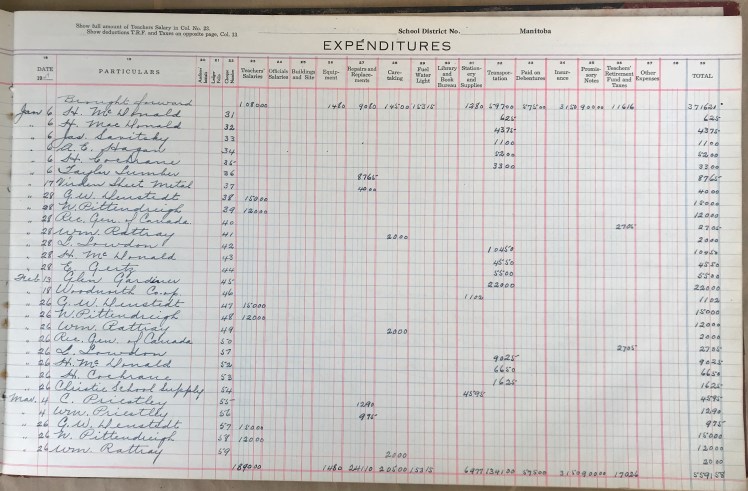 Show full amount of Teachers Salary in Col. 23.
Show deductions T.R.F. and Taxes on opposite page, Col. 13.
School District No. Manitoba
EXPENDITURES
DATE PARTICULARS Teachers' Salaries Officials Salaries Buildings and Site Equipment Repairs and Replacements Caretaking Fuel Water Light Library and Book Bureau Stationery and Supplies Transportation Paid on Debentures Insurance Promissory Notes Teachers' Retirement Fund and Taxes Other Expenses TOTAL
Brought forward 1080.00 14.80 90.80 145.00 153.15 12.80 597.00 575.00 31.50 900.00 116.16 3716.20
Jan 6 H. McDonald 31 6.25 6.25
" 6 H. MacDonald 32 43.75 43.75
" 6 Jas. Savitsky 33 11.00 11.00
" 6 A. E. Hagan 34 52.00 52.00
" 6 H. Cochrane 35 33.00 33.00
" 6 Taylor Lumber 36 87.65 87.65
" 17 Virden Sheet Metal 37 40.00 40.00
" 28 G. W. Henstedt 38 150.00 150.00
" 28 N. Pittendreigh 39 120.00 120.00
" 28 Rec. Gen. of Canada 40 27.05 27.05
" 28 Wm. Rattray 41 20.00 20.00
" 28 L. Lowdon 42 104.50 104.50
" 28 H. McDonald 43 45.50 45.50
" 28 E. Gertz 44 55.00 55.00
Feb 13 Glen Gardiner 45 220.00 220.00
" 18 Woodnorth Co-op. 46 11.02 11.02
" 26 G. W. Henstedt 47 150.00 150.00
" 26 N. Pittendreigh 48 120.00 120.00
" 26 Wm. Rattray 49 20.00 20.00
" 26 Rec. Gen. of Canada 50 27.05 27.05
" 26 L. Lowdon 51 90.25 90.25
" 26 H. McDonald 52 66.50 66.50
" 26 H. Cochrane 53 16.25 16.25
" 26 Christie School Supply 54 45.95 45.95
Mar. 4 C. Priestley 55 12.90 12.90
" 4 Wm. Priestley 56 9.75 9.75
" 26 G. W. Henstedt 57 150.00 150.00
" 26 N. Pittendreigh 58 120.00 120.00
" 26 Wm. Rattray 59 20.00 20.00
1890.00 14.80 241.10 205.00 153.15 69.77 1341.00 575.00 31.50 900.00 170.26 5591.58